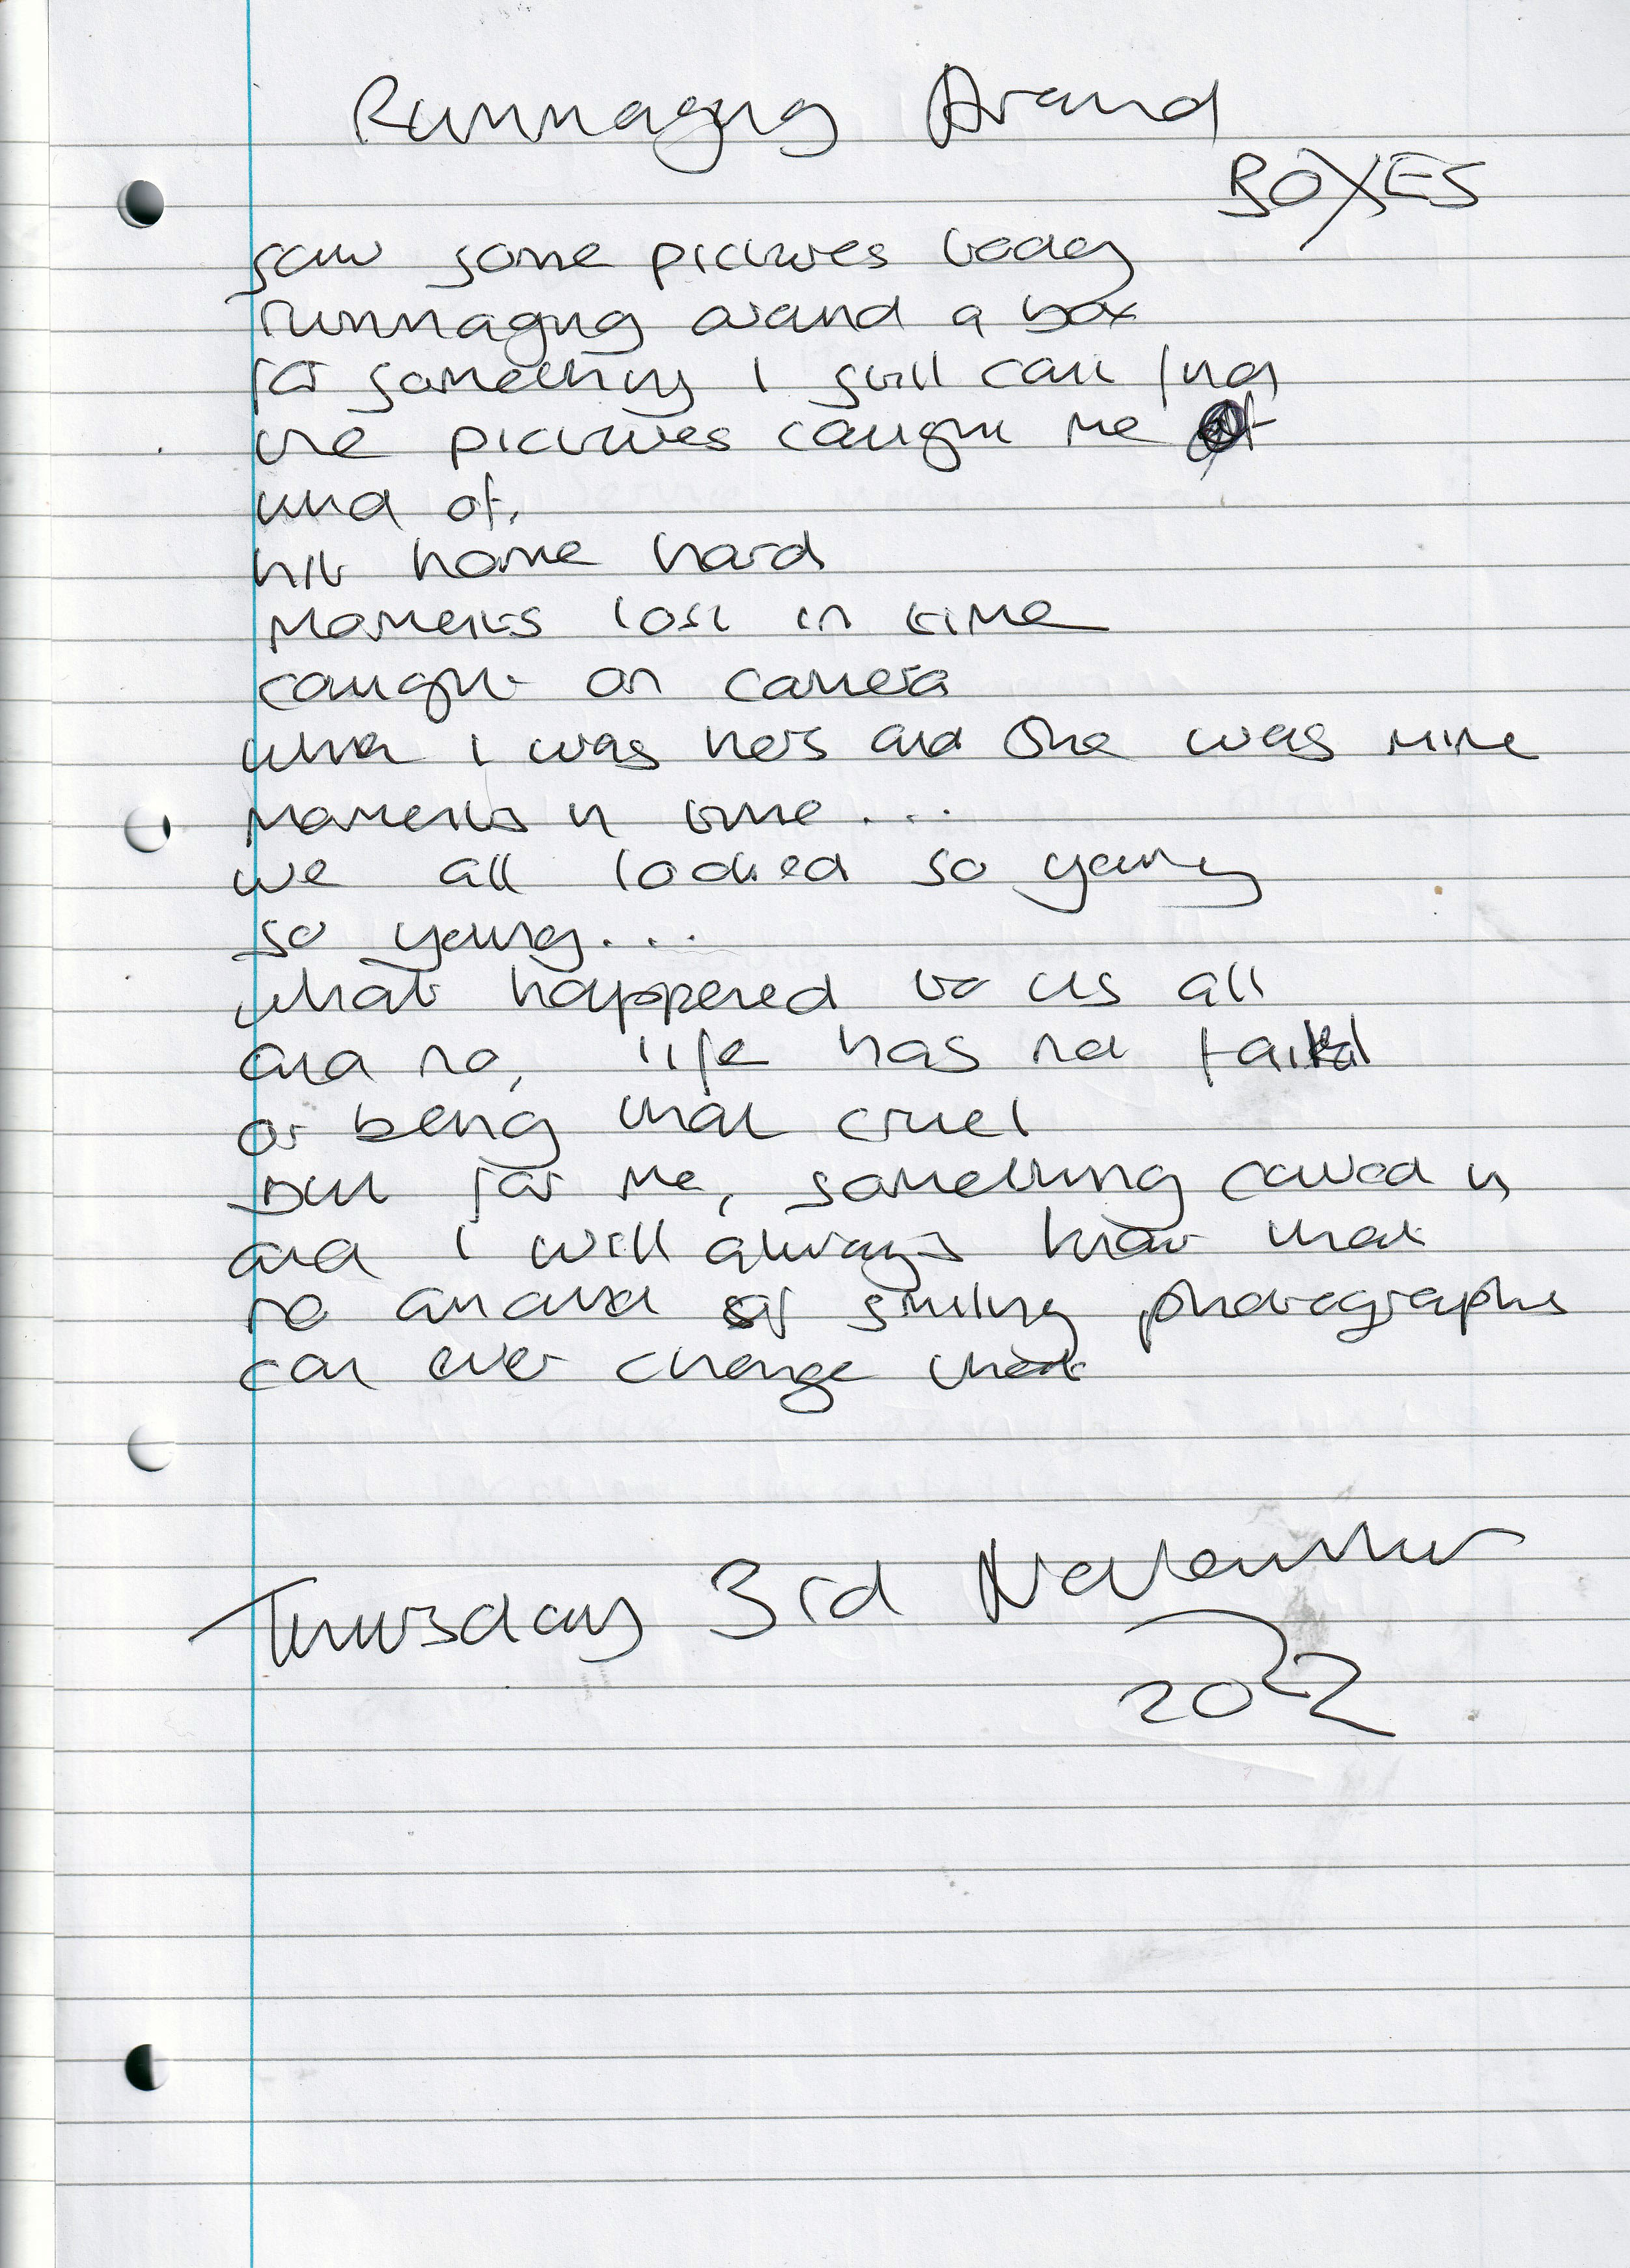 Rummaging Around
BOXES
saw some pictures today
rummaging around a box
for something I still can't find
the pictures caught me
kind of,
hit home hard
moments lost in time
caught on camera
when I was hers and she was mine
moments in time...
we all looked so young
so young...
what happened to us all
and no, life has not failed
or being that cruel
but for me, something caved in
and I will always know that
no amount of smiling photographs
can ever change that
Thursday 3rd November
2022